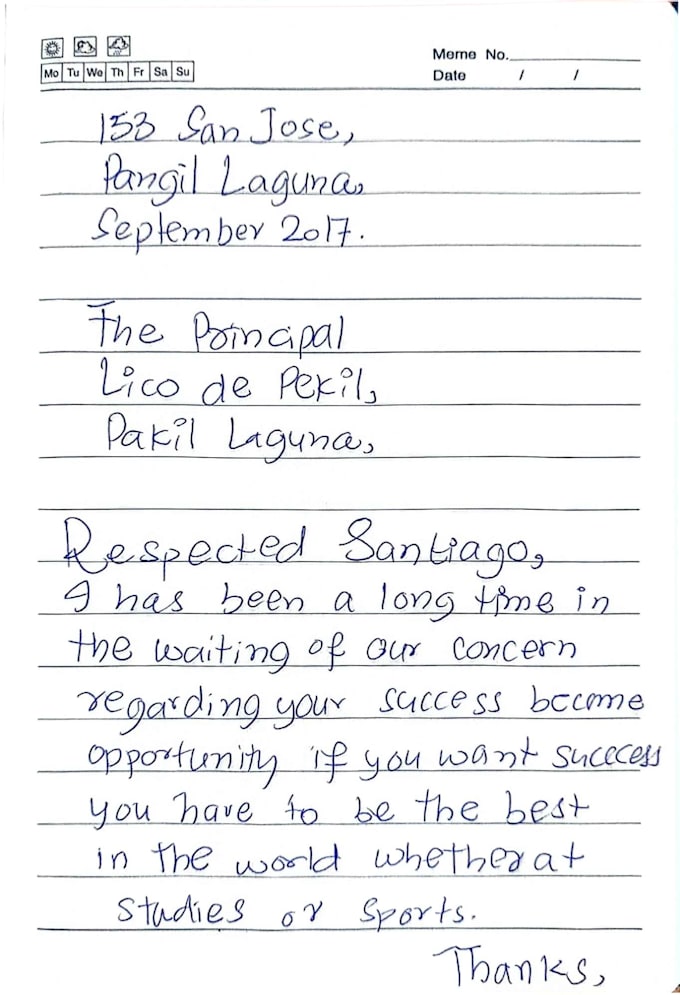 Mo Tu We Th Fr Sa Su
Memo No.
Date / /
153 San Jose,
Pangil Laguna,
September 2017.
The Principal
Lico de Pekil,
Pakil Laguna,
Respected Santiago,
I has been a long time in
the waiting of our concern
regarding your success become
opportunity if you want succecess
you have to be the best
in the world whether at
studies or sports.
Thanks,